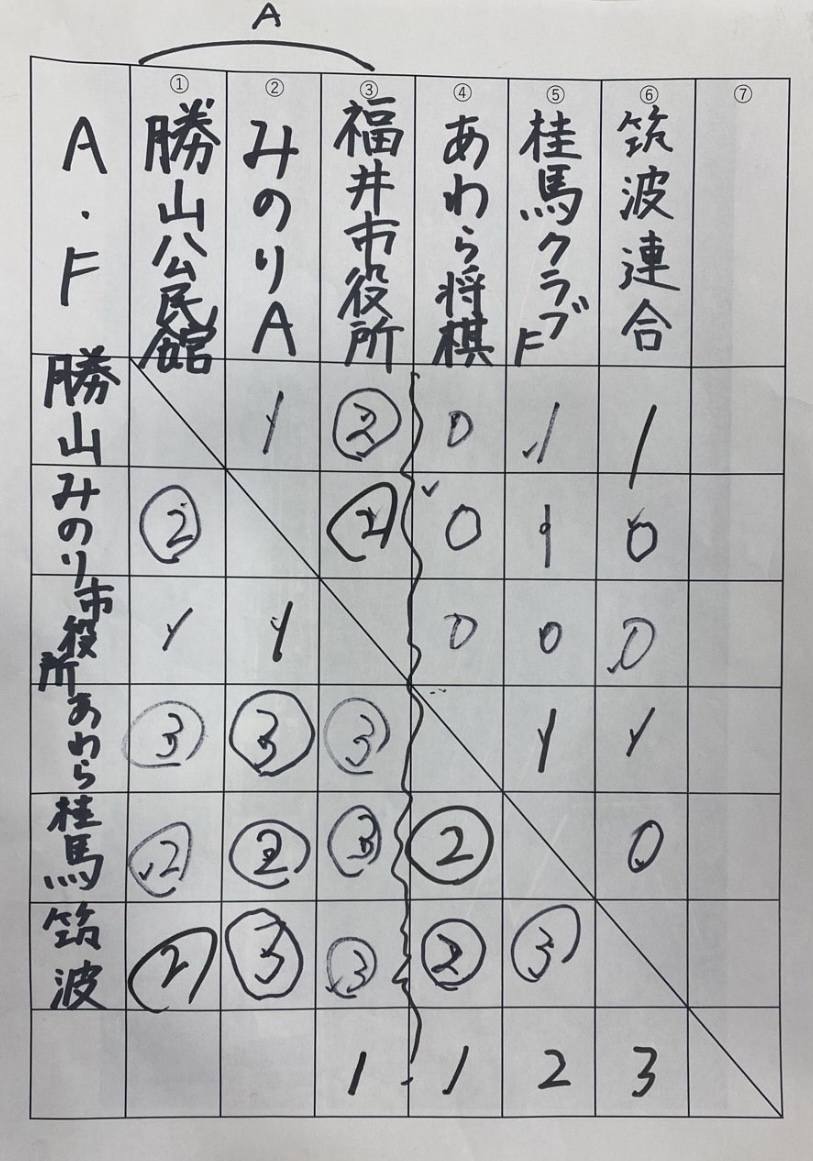 A
① ② ③ ④ ⑤ ⑥ ⑦
A・F 勝山公民館 みのりA 福井市役所 あわら将棋 桂馬クラブF 筑波連合
勝山 1 ② 0 1 1
みのり ② ② 0 1 0
市役所 1 1 0 0 0
あわら ③ ③ ③ 1 1
桂馬 ② ② ③ ② 0
筑波 ② ③ ③ ② ③
1 1 2 3